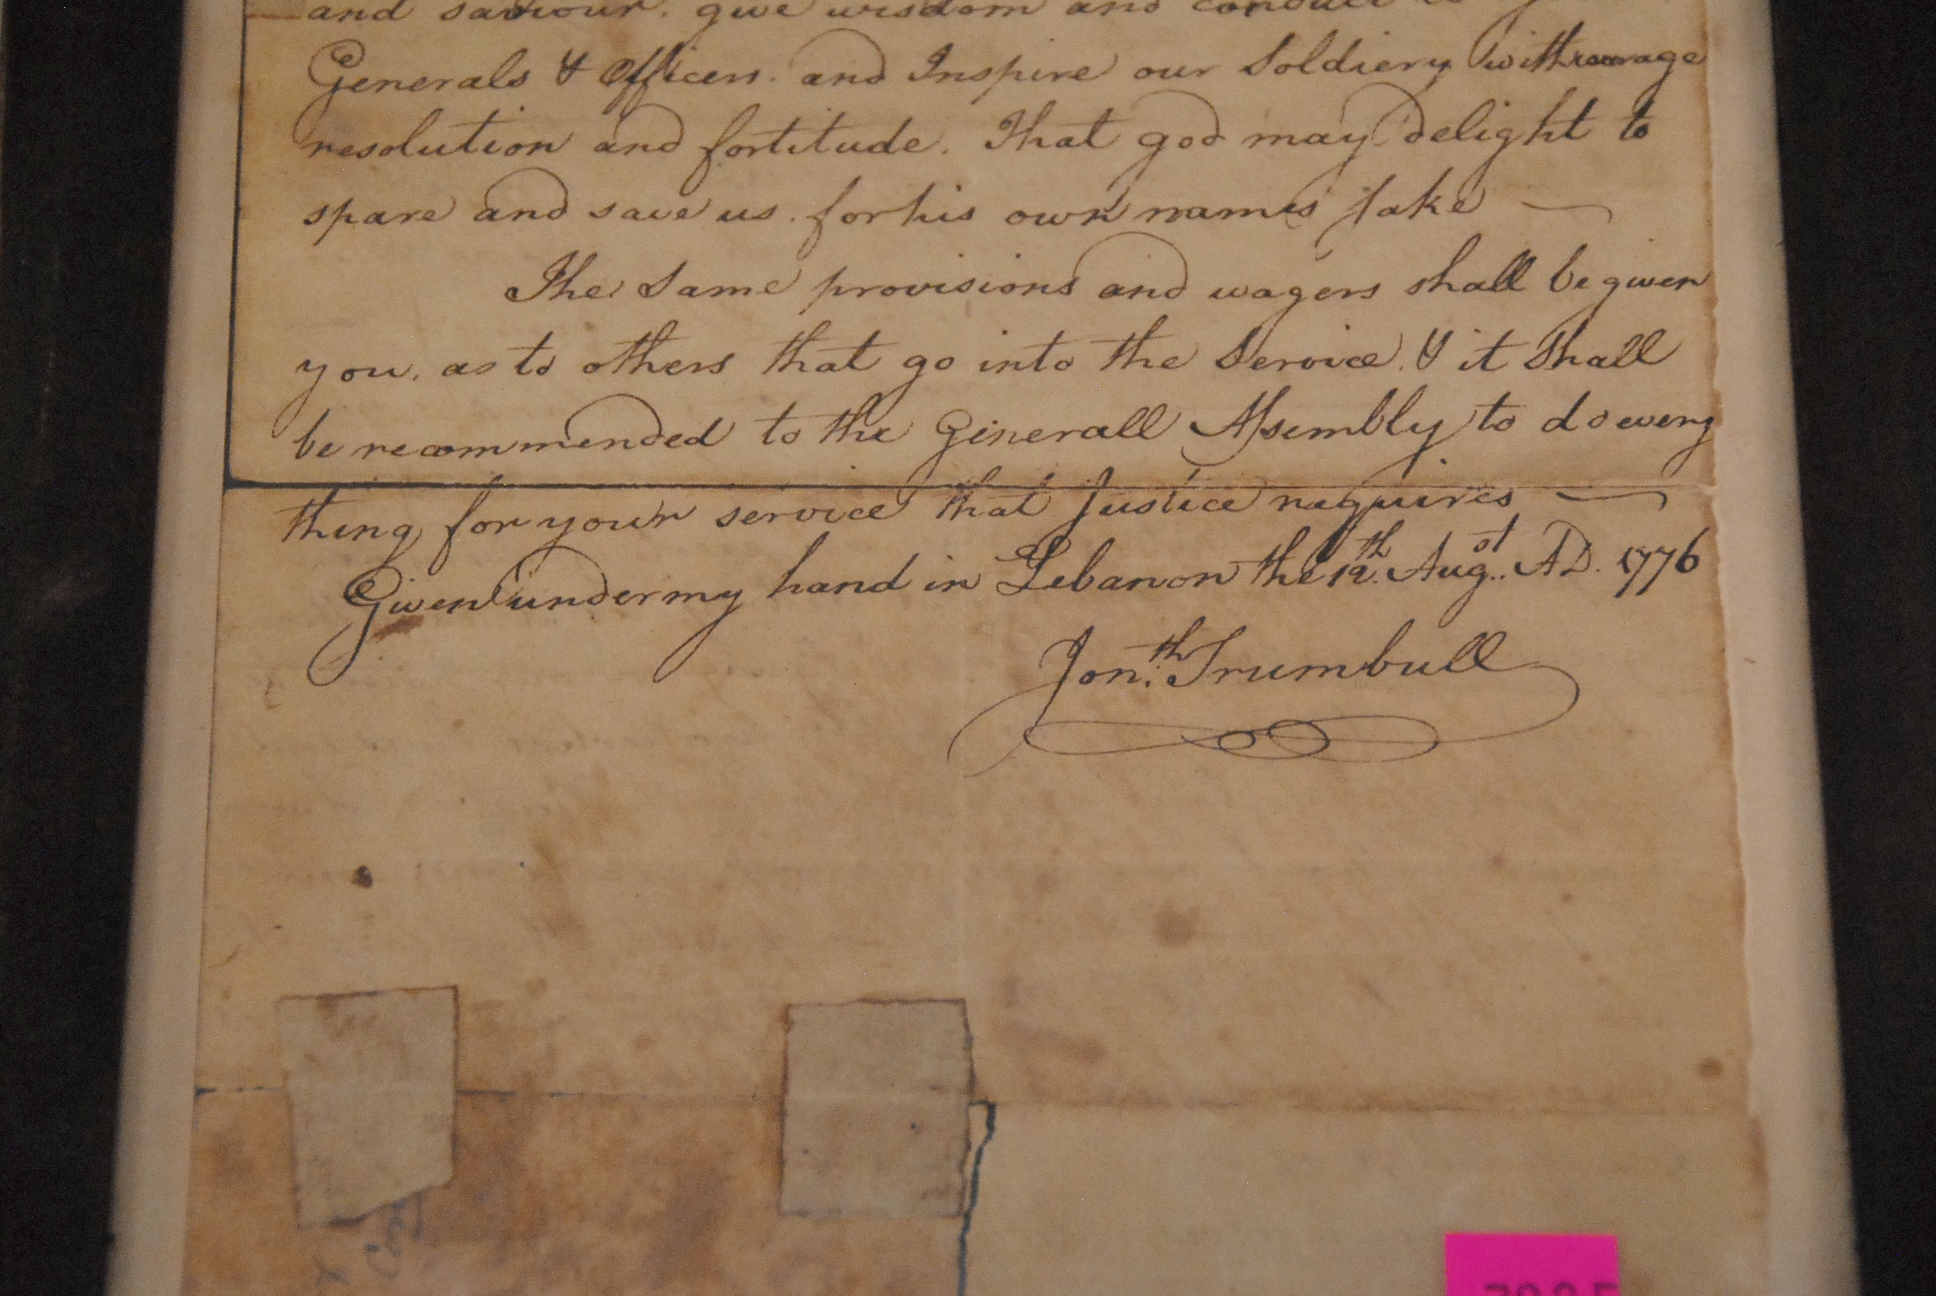 and saviour. give wisdom and conduct to
Generals & Officers. and Inspire our Soldiery with courage
resolution and fortitude. That god may delight to
spare and save us. for his own names sake —
The Same provisions and wagers shall be given
you. as to others that go into the Service. & it Shall
be recommended to the Generall Assembly to do every
thing for your service that Justice requires —
Given under my hand in Lebanon the 12th. Augst. AD. 1776
Jonth. Trumbull